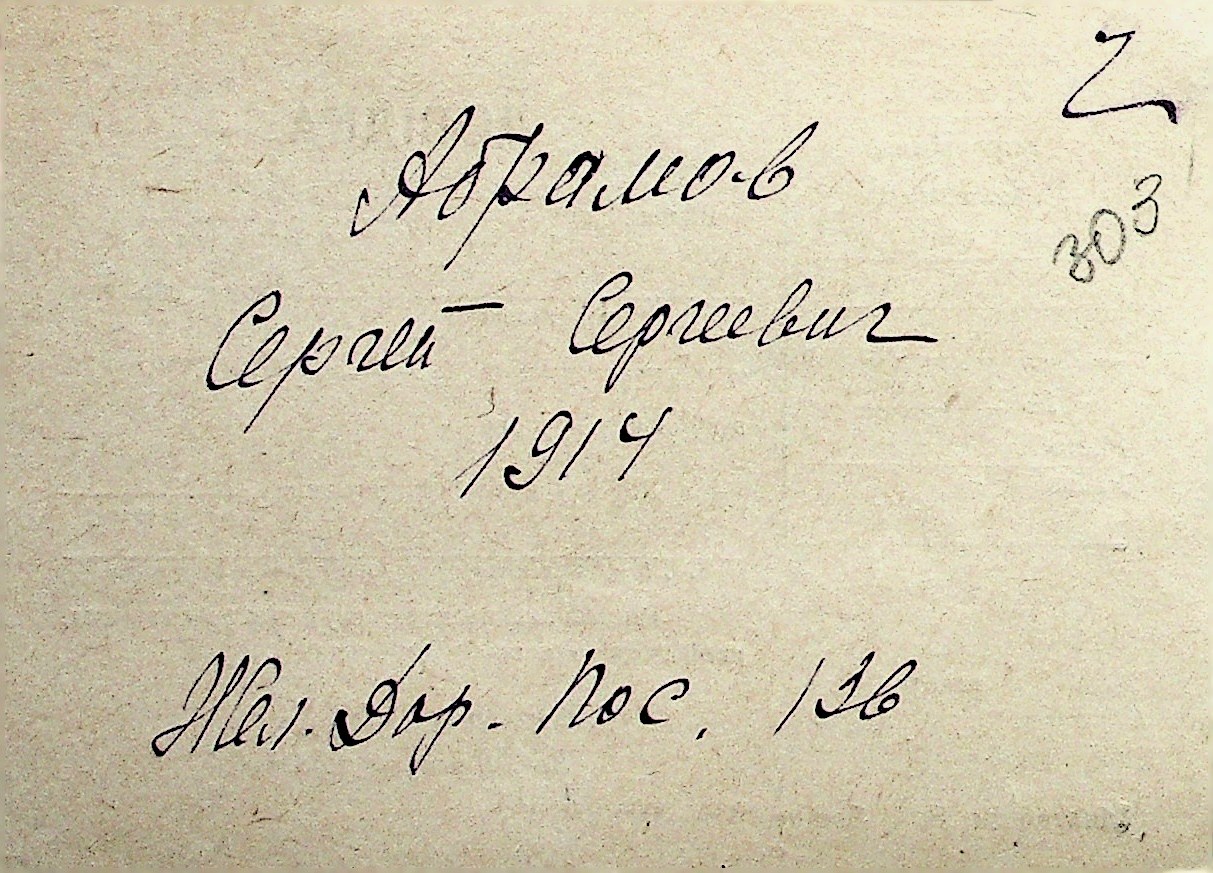 303
Абрамов
Сергей Сергеевич
1914
Жел. Дор. Пос. 13в